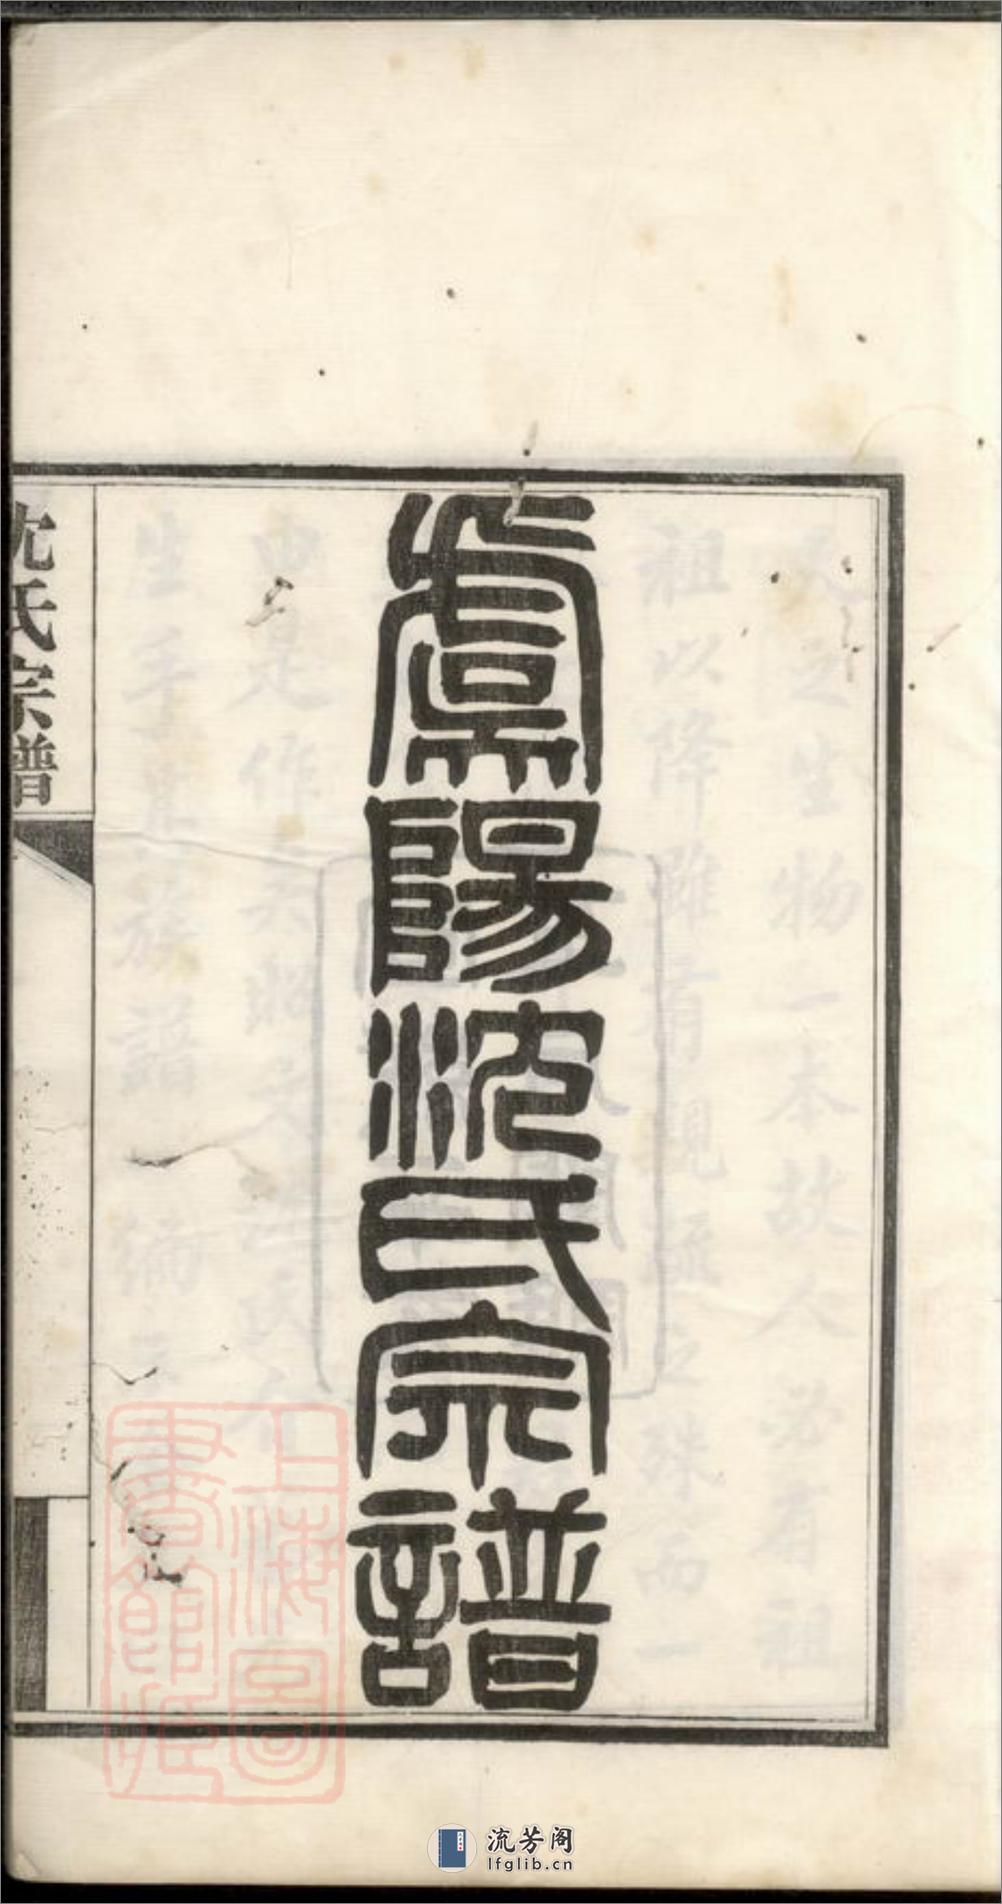 虞陽沈氏宗譜
沈氏宗譜
上海圖
書館藏
流芳阁
lfglib.cn